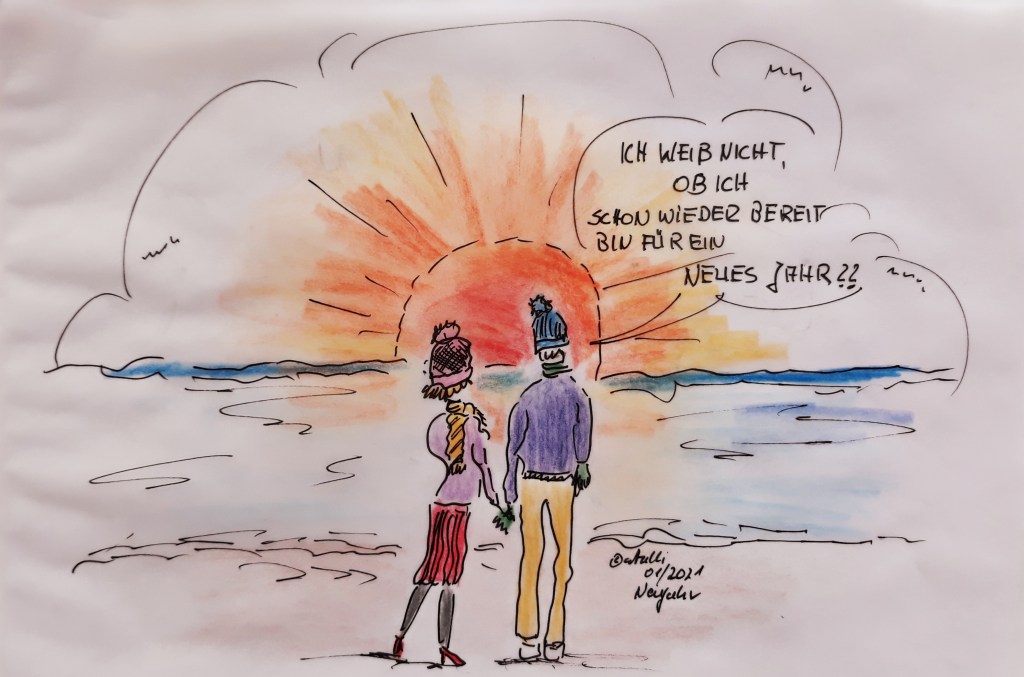 ICH WEIß NICHT,
OB ICH
SCHON WIEDER BEREIT
BIN FÜR EIN
NEUES JAHR??
01/2021
Neujahr